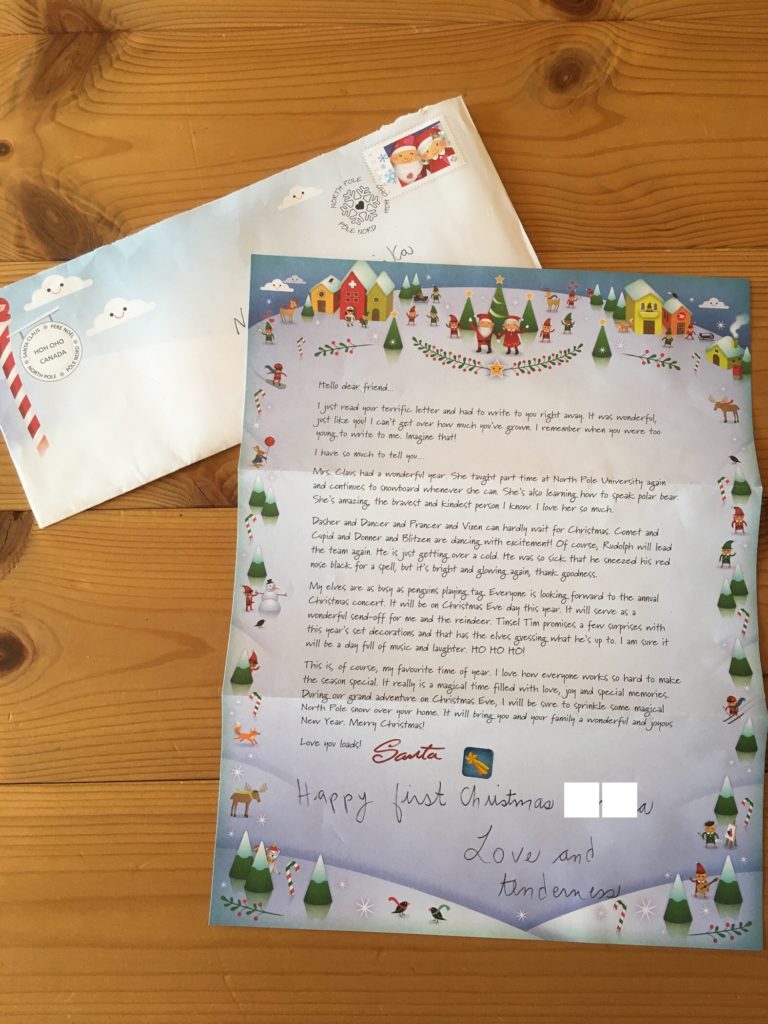 NORTH POLE
HOH OHO
PÔLE NORD
SANTA CLAUS
PÈRE NOËL
HOH OHO
CANADA
NORTH POLE
PÔLE NORD
Hello dear friend...
I just read your terrific letter and had to write to you right away. It was wonderful,
just like you! I can't get over how much you've grown. I remember when you were too
young to write to me. Imagine that!
I have so much to tell you...
Mrs. Claus had a wonderful year. She taught part time at North Pole University again
and continues to snowboard whenever she can. She's also learning how to speak polar bear.
She's amazing, the bravest and kindest person I know. I love her so much.
Dasher and Dancer and Prancer and Vixen can hardly wait for Christmas. Comet and
Cupid and Donner and Blitzen are dancing with excitement! Of course, Rudolph will lead
the team again. He is just getting over a cold. He was so sick that he sneezed his red
nose black for a spell, but it's bright and glowing again, thank goodness.
My elves are as busy as penguins playing tag. Everyone is looking forward to the annual
Christmas concert. It will be on Christmas Eve day this year. It will serve as a
wonderful send-off for me and the reindeer. Tinsel Tim promises a few surprises with
this year's set decorations and that has the elves guessing what he's up to. I am sure it
will be a day full of music and laughter. HO HO HO!
This is, of course, my favourite time of year. I love how everyone works so hard to make
the season special. It really is a magical time filled with love, joy and special memories.
During our grand adventure on Christmas Eve, I will be sure to sprinkle some magical
North Pole snow over your home. It will bring you and your family a wonderful and joyous
New Year. Merry Christmas!
Love you loads! Santa
Happy first Christmas
Love and
tenderness